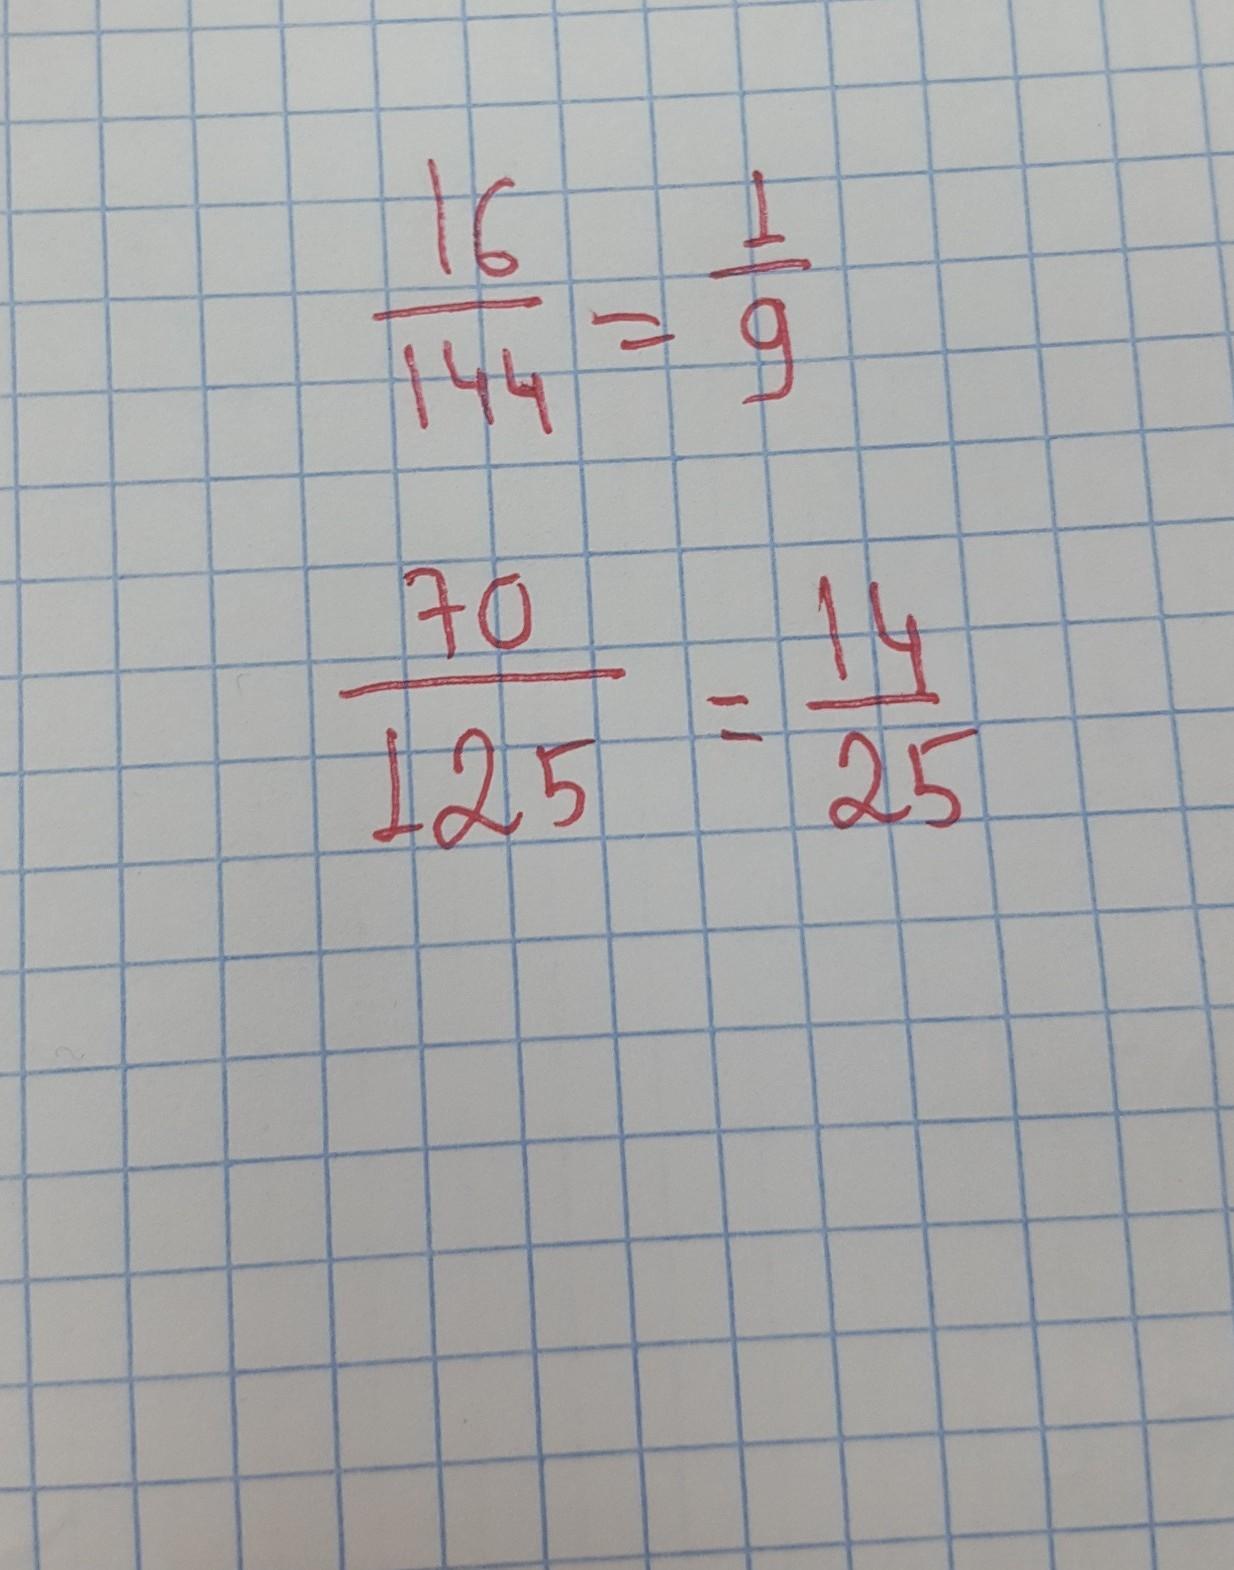 16/144 = 1/9
70/125 = 14/25